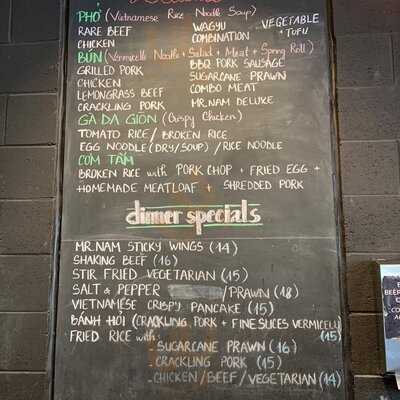 PHỞ (Vietnamese Rice Noodle Soup)
RARE BEEF WAGYU VEGETABLE
CHICKEN COMBINATION + TOFU
BÚN (Vermicelli Noodle + Salad + Meat + Spring Roll)
GRILLED PORK BBQ PORK SAUSAGE
CHICKEN SUGARCANE PRAWN
LEMONGRASS BEEF COMBO MEAT
CRACKLING PORK MR.NAM DELUXE
GÀ DA GIÒN (Crispy Chicken)
TOMATO RICE / BROKEN RICE
EGG NOODLE (DRY/SOUP) / RICE NOODLE
CƠM TẤM
BROKEN RICE with PORK CHOP + FRIED EGG +
HOMEMADE MEATLOAF + SHREDDED PORK
dinner specials
MR.NAM STICKY WINGS (14)
SHAKING BEEF (16)
STIR FRIED VEGETARIAN (15)
SALT & PEPPER /PRAWN (18)
VIETNAMESE CRISPY PANCAKE (15)
BÁNH HỎI (CRACKLING PORK + FINE SLICES VERMICELLI)
(15)
FRIED RICE with:
- SUGARCANE PRAWN (16)
- CRACKLING PORK (15)
- CHICKEN/BEEF/VEGETARIAN (14)